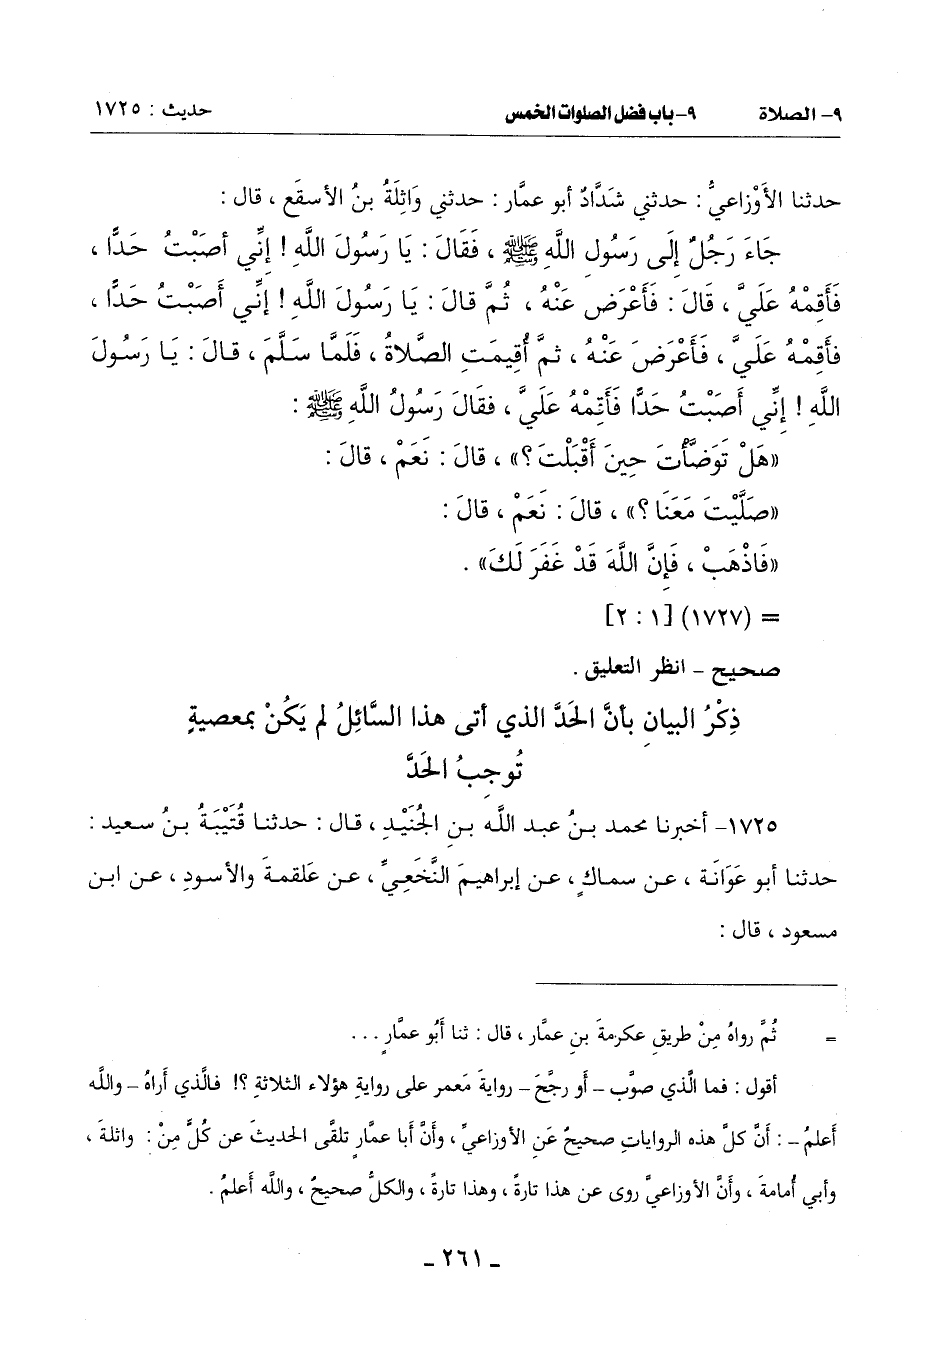 ٩- الصلاة ٩- باب فضل الصلوات الخمس حديث : ١٧٢٥
حدثنا الأَوْزاعيُّ : حدثني شَدَّادٌ أبو عمَّار : حدثني وَاثِلَةُ بنُ الأسقَع ، قال :
جَاءَ رَجُلٌ إلَى رَسُولِ اللَّهِ ﷺ ، فَقَالَ : يَا رَسُولَ اللَّهِ ! إِنِّي أصَبْتُ حَدًّا ،
فَأَقِمْهُ عَلَيَّ ، قَالَ : فَأَعْرَضَ عَنْهُ ، ثُمَّ قالَ : يَا رَسُولَ اللَّهِ ! إنِّي أَصَبْتُ حَدًّا ،
فأَقِمْهُ عَلَيَّ ، فَأَعْرَضَ عَنْهُ ، ثمَّ أُقِيمَتِ الصَّلاةُ ، فَلَمَّا سَلَّمَ ، قالَ : يَا رَسُولَ
اللَّهِ ! إِنِّي أَصَبْتُ حَدًّا فَأَقِمْهُ عَلَيَّ ، فقَالَ رَسُولُ اللَّهِ ﷺ :
«هَلْ تَوَضَّأْتَ حِينَ أَقْبَلْتَ ؟» ، قالَ : نَعَمْ ، قالَ :
«صَلَّيْتَ مَعَنَا ؟» ، قالَ : نَعَمْ ، قالَ :
«فَاذْهَبْ ، فَإِنَّ اللَّهَ قَدْ غَفَرَ لَكَ» .
= (١٧٢٧) [١ : ٢]
صحيح - انظر التعليق .
ذِكْرُ البيانِ بأنَّ الحَدَّ الذي أتى هذا السَّائِلُ لم يَكُنْ بمعصيةٍ
تُوجِبُ الحَدَّ
١٧٢٥- أخبرنا محمد بنُ عبد اللَّه بنِ الجُنَيْدِ ، قال : حدثنا قُتَيْبَةُ بنُ سعيد :
حدثنا أبو عَوَانَة ، عن سماكٍ ، عن إبراهيمَ النَّخَعِيِّ ، عن عَلقمةَ والأسودِ ، عن ابن
مسعود ، قال :
= ثُمَّ رواهُ مِنْ طريقِ عكرمةَ بنِ عمَّار ، قال : ثنا أبُو عمَّارٍ . . .
أقول : فما الَّذي صوَّب - أو رجَّحَ - روايةَ مَعمر على روايةِ هؤلاء الثلاثةِ ؟! فالَّذي أَراهُ - واللَّه
أعلمُ - : أنَّ كلَّ هذه الرواياتِ صحيحٌ عَنِ الأوزاعيِّ ، وأنَّ أبا عمَّارٍ تلقَّى الحديثَ عن كُلٍّ مِنْ : واثلةَ ،
وأبي أُمامةَ ، وأنَّ الأوزاعيَّ روى عن هذا تارةً ، وهذا تارةً ، والكلُّ صحيحٌ ، واللَّه أعلمُ .
- ٢٦١ -